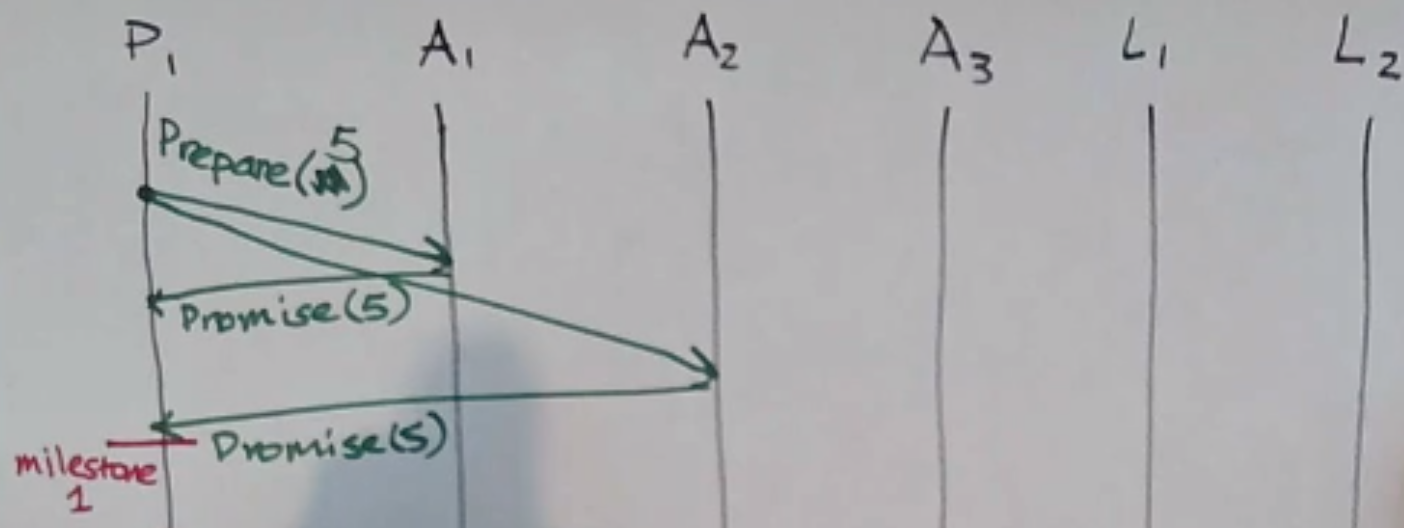 P₁ A₁ A₂ A₃ L₁ L₂
5
Prepare( )
Promise(5)
Promise(5)
milestone
1